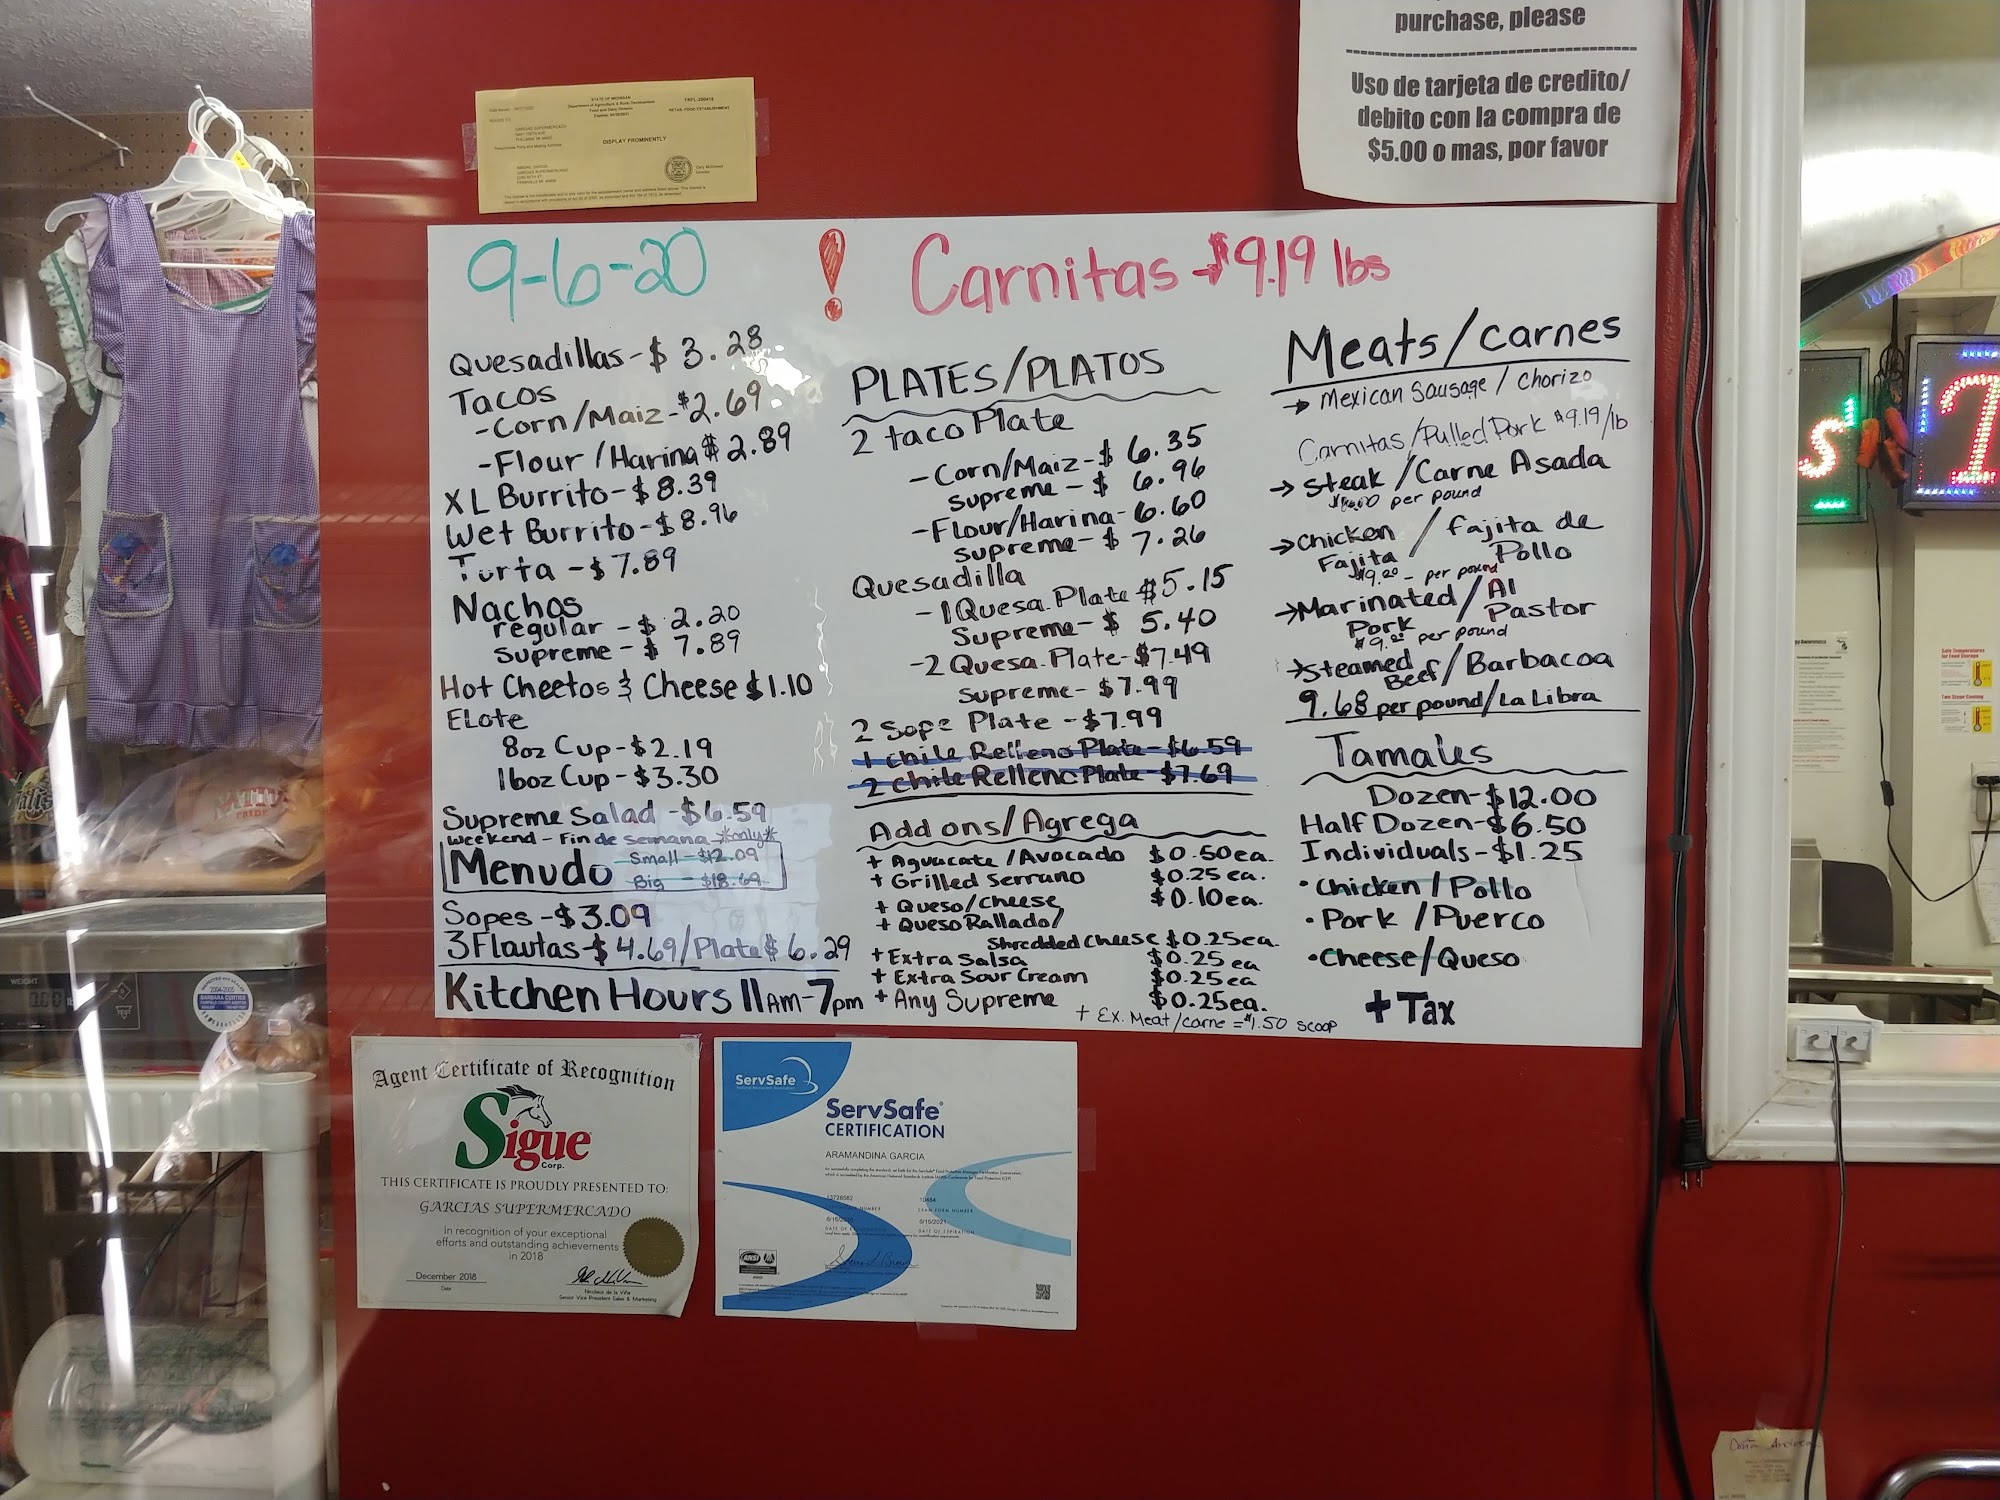 purchase, please
Uso de tarjeta de credito/
debito con la compra de
$5.00 o mas, por favor
STATE OF MICHIGAN
Department of Agriculture & Rural Development
Food and Dairy Division
RETAIL FOOD ESTABLISHMENT
DISPLAY PROMINENTLY
9-6-20 ! Carnitas - $9.19 lbs
Quesadillas - $ 3.28
Tacos
- Corn/Maiz - $2.69
- Flour/Harina $2.89
XL Burrito - $8.39
Wet Burrito - $8.96
Torta - $7.89
Nachos
regular - $ 2.20
supreme - $ 7.89
Hot Cheetos & Cheese $1.10
ELote
8oz Cup - $2.19
16oz Cup - $3.30
Supreme Salad - $6.59
weekend - Fin de semana *only*
Menudo Small - $12.09
Big - $18.69
Sopes - $3.09
3 Flautas - $4.69/Plate $6.29
Kitchen Hours 11AM-7pm
PLATES/PLATOS
2 taco Plate
- Corn/Maiz - $ 6.35
supreme - $ 6.96
- Flour/Harina - 6.60
supreme - $ 7.26
Quesadilla
- 1 Quesa. Plate $5.15
Supreme - $ 5.40
- 2 Quesa. Plate - $7.49
supreme - $7.99
2 Sope Plate - $7.99
1 chile Relleno Plate - $6.59
2 chile Relleno Plate - $7.69
Add ons/Agrega
+ Aguacate/Avocado $0.50ea.
+ Grilled Serrano $0.25 ea.
+ Queso/Cheese $0.10ea.
+ Queso Rallado/
Shredded Cheese $0.25ea.
+ Extra Salsa $0.25 ea
+ Extra Sour Cream $0.25ea
+ Any Supreme $0.25ea.
+ Ex. Meat/carne = $1.50 scoop
Meats/carnes
→ Mexican Sausage / Chorizo
Carnitas/Pulled Pork $9.19/lb
→ Steak/Carne Asada
per pound
→ Chicken / fajita de
Fajita Pollo
$9.20 - per pound
→ Marinated/Al
Pork Pastor
per pound
→ Steamed
Beef/Barbacoa
9.68 per pound/La Libra
Tamales
Dozen - $12.00
Half Dozen - $6.50
Individuals - $1.25
• Chicken/Pollo
• Pork/Puerco
• Cheese/Queso
+ Tax
Agent Certificate of Recognition
Sigue
Corp.
THIS CERTIFICATE IS PROUDLY PRESENTED TO:
GARCIAS SUPERMERCADO
In recognition of your exceptional
efforts and outstanding achievements
in 2018
December 2018
Date
Nicolaus de la Viña
Senior Vice President Sales & Marketing
ServSafe
ServSafe®
CERTIFICATION
ARAMANDINA GARCIA
DATE OF EXPIRATION
ANSI
WEIGHT
2004-2005
BARBARA CURTISS
's
T
Safe Temperatures
for Food Storage
Two Stage Cooling